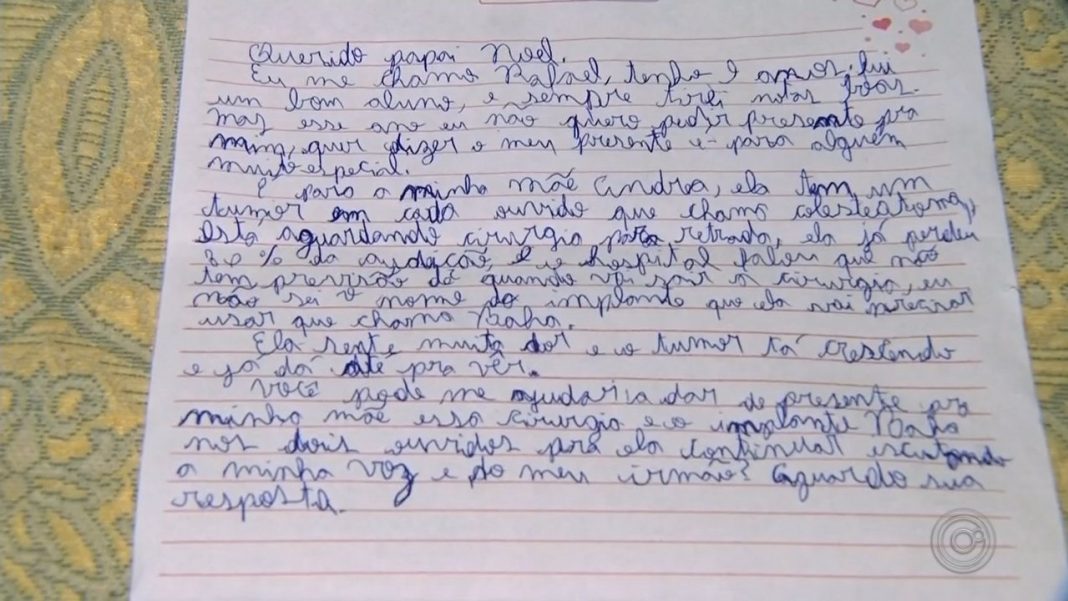 Querido papai Noel.
Eu me chamo Rafael, tenho 9 anos, fui
um bom aluno, e sempre tirei notas boas.
mas esse ano eu não quero pedir presente pra
mim, quer dizer o meu presente é para alguém
muito especial.
É para a minha mãe Andra, ela tem um
tumor em cada ouvido que chama colesteatoma,
está aguardando cirurgia para retirada, ela já perdeu
30% da audição, e o hospital falou que não
tem previsão de quando vai sair a cirurgia, eu
não sei o nome do implante que ela vai precisar
usar que chama Baha.
Ela sente muita dor e o tumor tá crescendo
e já dá até pra vêr.
Você pode me ajudar a dar de presente pra
minha mãe essa cirurgia e o implante Baha
nos dois ouvidos pra ela continuar escutando
a minha voz e do meu irmão? Aguardo sua
resposta.